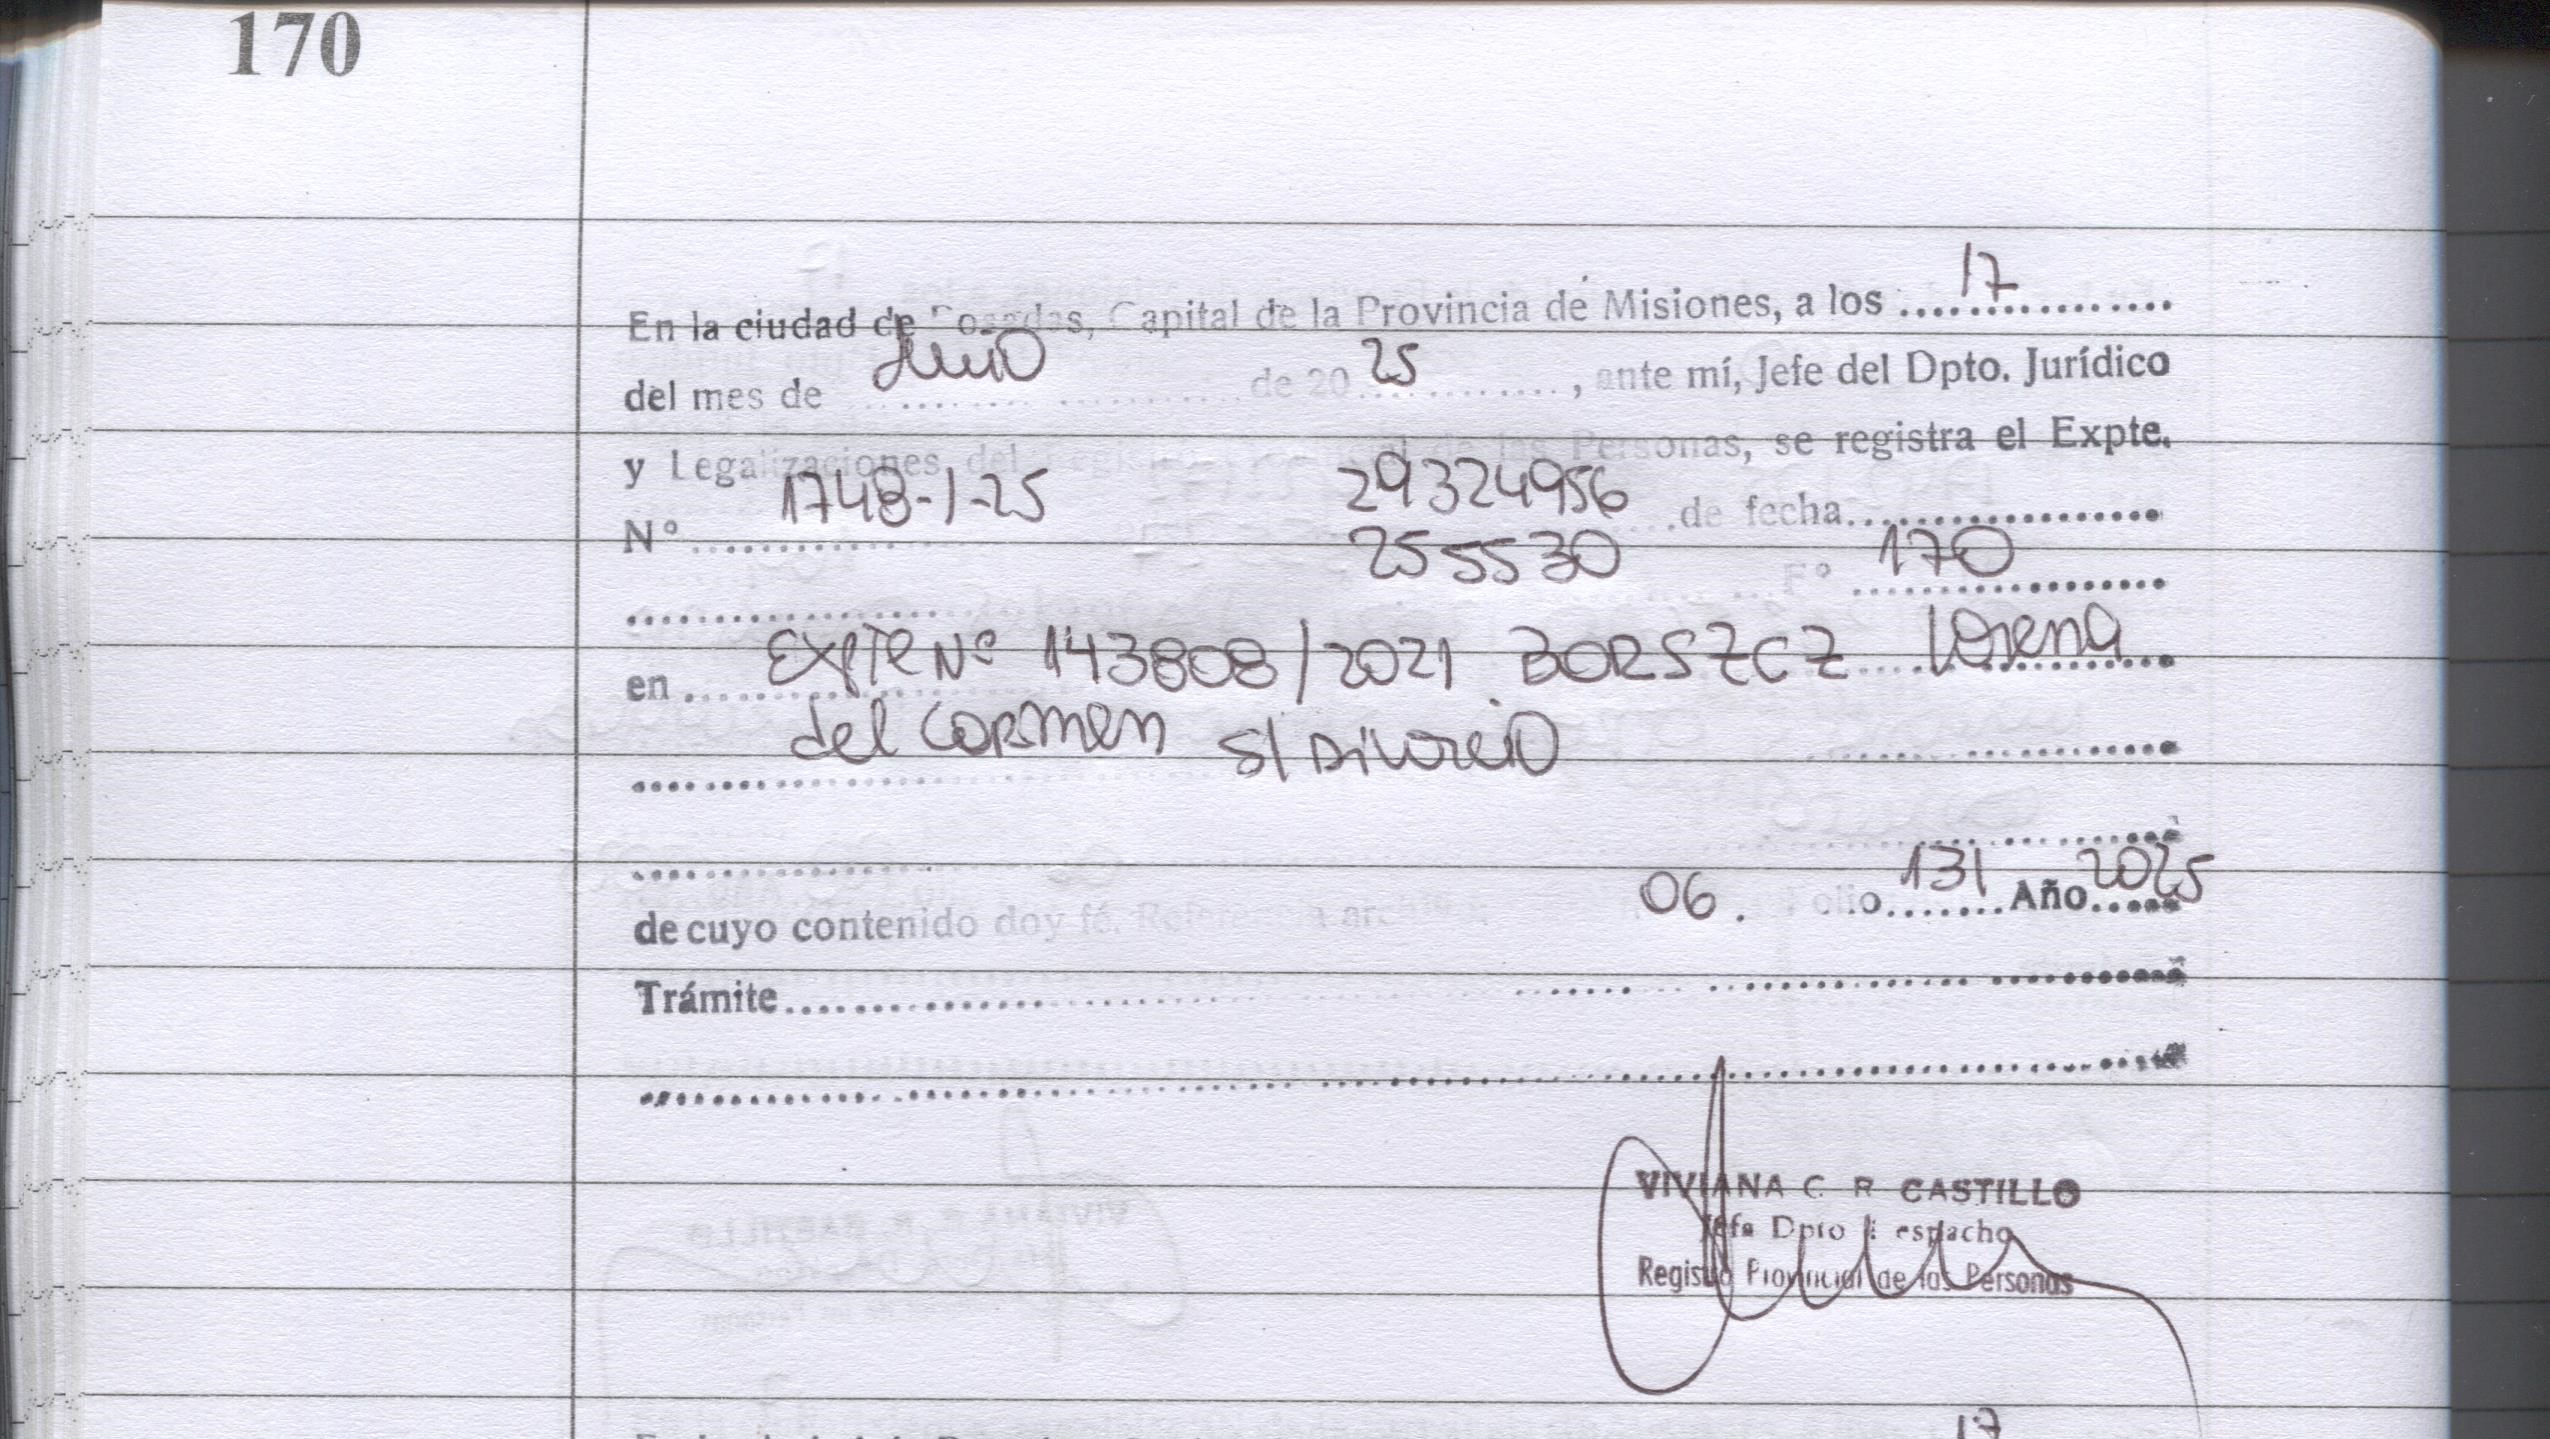 170
En la ciudad de Posadas, Capital de la Provincia de Misiones, a los ....17............
del mes de Junio de 20 25 ............, ante mí, Jefe del Dpto. Jurídico
y Legalizaciones del Registro Provincial de las Personas, se registra el Expte.
N° 1748-1-25 29324956 de fecha..................
255530 F° 170
en Expte Nº 143808/2021 BORSZCZ Lorena
del Carmen s/ Divorcio
de cuyo contenido doy fé. Referencia 06. Folio 131 Año 2025
Trámite
VIVIANA C. R. CASTILLO
Jefe Dpto Despacho
Registro Provincial de las Personas
17